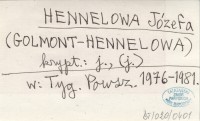 HENNELOWA Józefa
(GOLMONT-HENNELOWA)
krypt.: j., (j.)
w: Tyg. Powsz. 1976-1981.